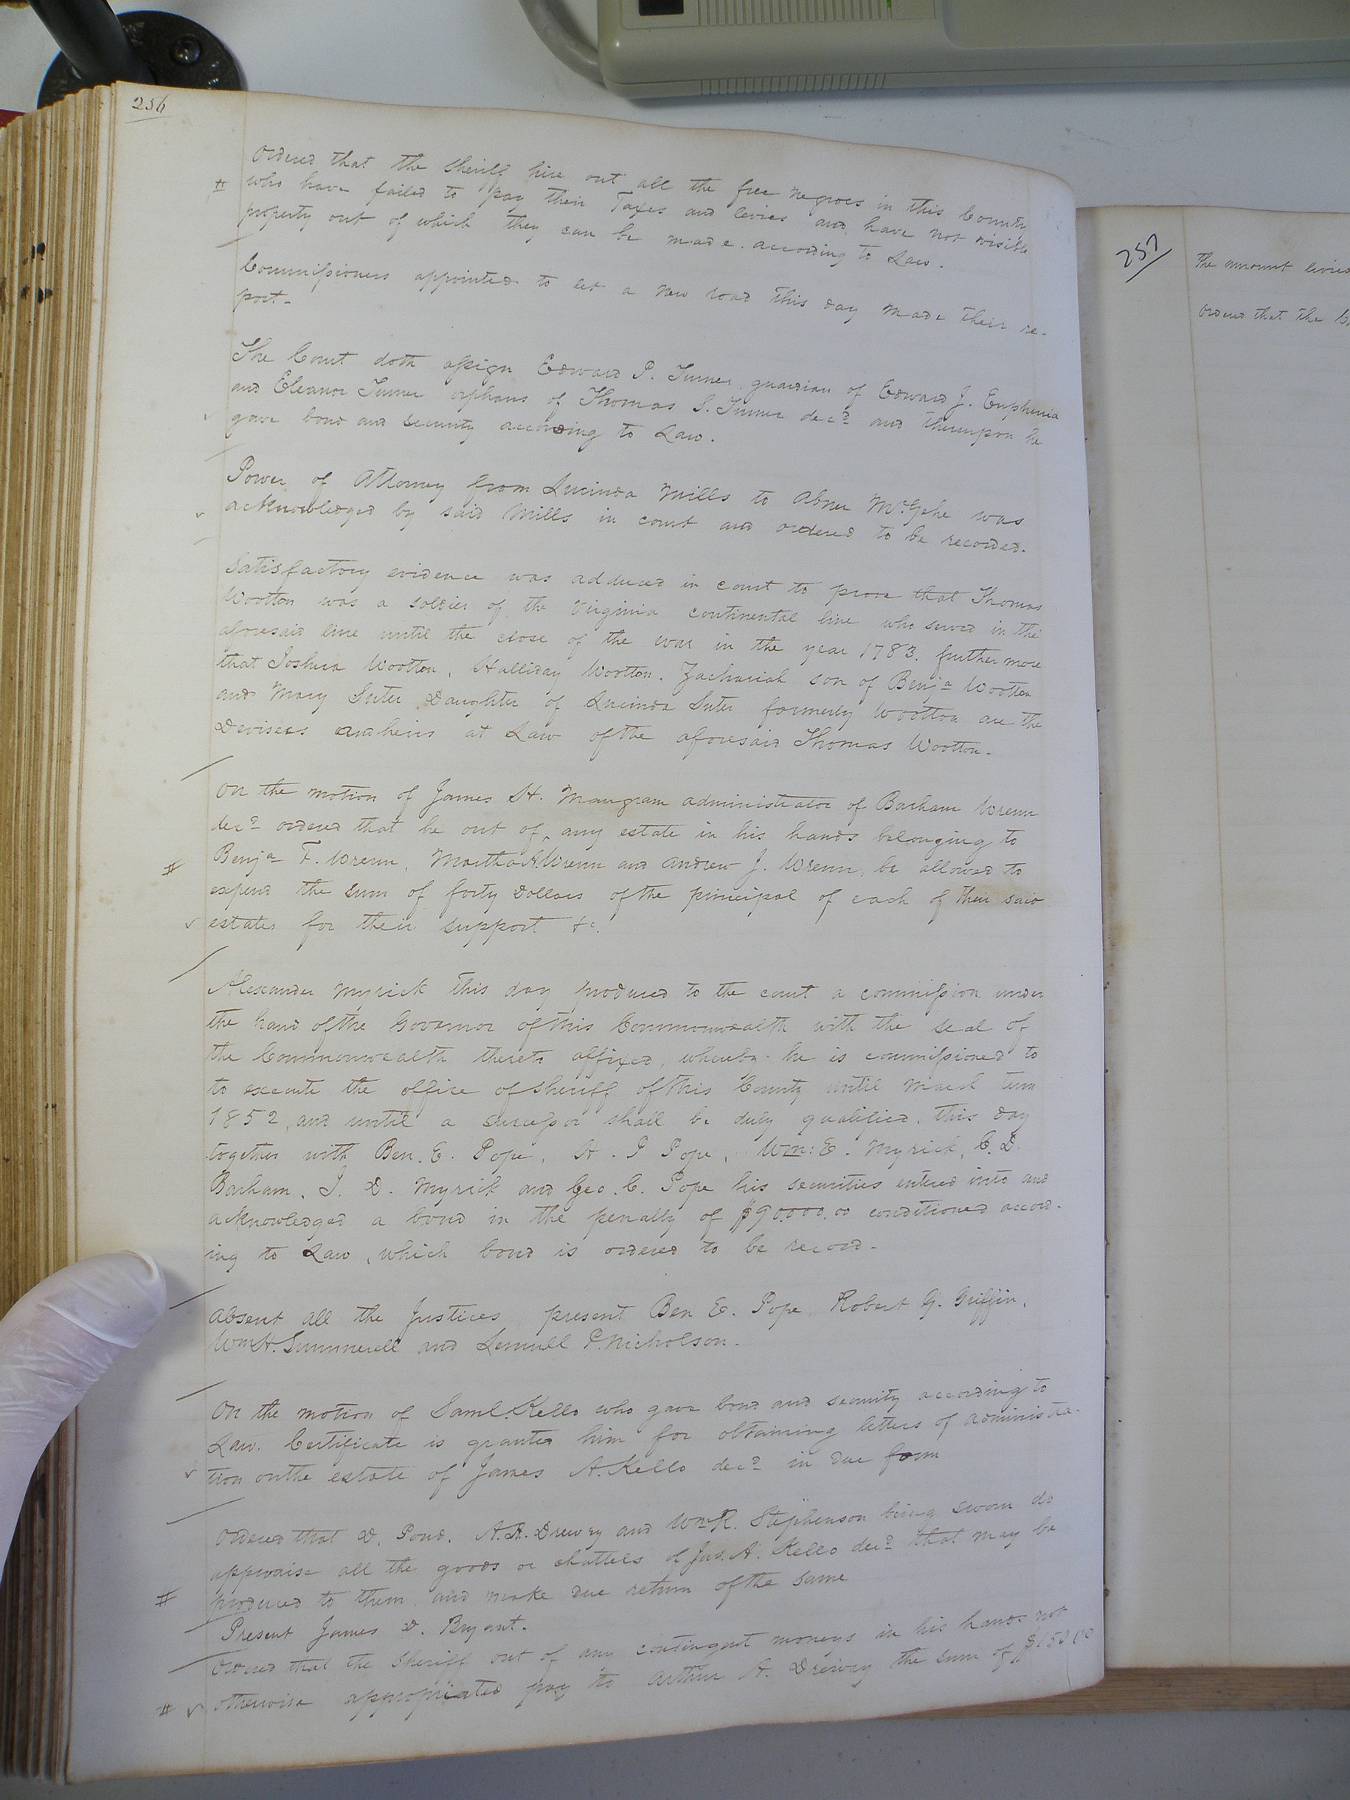 256
Ordered that the Sheriff hire out all the free negroes in this County
# who have failed to pay their Taxes and levies and have not visible
property out of which they can be made according to Law.
Commissioners appointed to let a new road this day made their re-
port-
The Court doth assign Edward P. Turner guardian of Edward J. Euphenia
and Eleanor Turner orphans of Thomas S. Turner decd. and thereupon he
gave bond and security according to Law.
Power of Attorney from Lucinda Mills to Abner McGehe was
acknowledged by said Mills in court and ordered to be recorded.
Satisfactory evidence was adduced in court to prove that Thomas
Wootton was a soldier of the Virginia continental line who served in the
aforesaid line until the close of the war in the year 1783. further more
that Joshua Wootton, Halliday Wootton. Zachariah son of Benja Wootton
and Mary Suter Daughter of Lucinda Suter formerly Wootton are the
Devisees and heirs at Law of the aforesaid Thomas Wootton.
On the motion of James H. Mangram administrator of Barham Wrenn
decd. ordered that he out of any estate in his hands belonging to
# Benja F. Wrenn, Martha A. Wrenn and Andrew J. Wrenn, be allowed to
expend the sum of forty Dollars of the principal of each of their said
estates for their support &c.
Alexander Myrick this day produced to the court a commission under
the hand of the Governor of this Commonwealth with the seal of
the Commonwealth thereto affixed, whereby he is commissioned to
to execute the office of Sheriff of this County until March term
1852, and until a successor shall be duly qualified, this day
together with Ben. E. Pope, H. P Pope, Wm: E. Myrick, C. D.
Barham, J. D. Myrick and Geo. C. Pope his securities entered into and
acknowledged a bond in the penalty of $90.000.00 conditioned accord-
ing to Law, which bond is ordered to be record-
Absent all the Justices present Ben E. Pope Robert G. Griffin,
Wm H. Summerell and Lemuell P. Nicholson.
On the motion of Saml. Kello who gave bond and security according to
Law. Certificate is granted him for obtaining letters of administra-
tion on the estate of James A. Kello decd in due form
Ordered that D. Pond, A. R. Drewry and Wm R. Stephenson being sworn do
appraise all the goods or chattels of Jas. A. Kello decd that may be
# produced to them and make due return of the same
Present James D. Bryant.
Ordered that the Sheriff out of any contingent moneys in his hands not
# otherwise appropriated pay to Arthur A. Drewry the sum of $150.00
257
The amount levied
Ordered that the